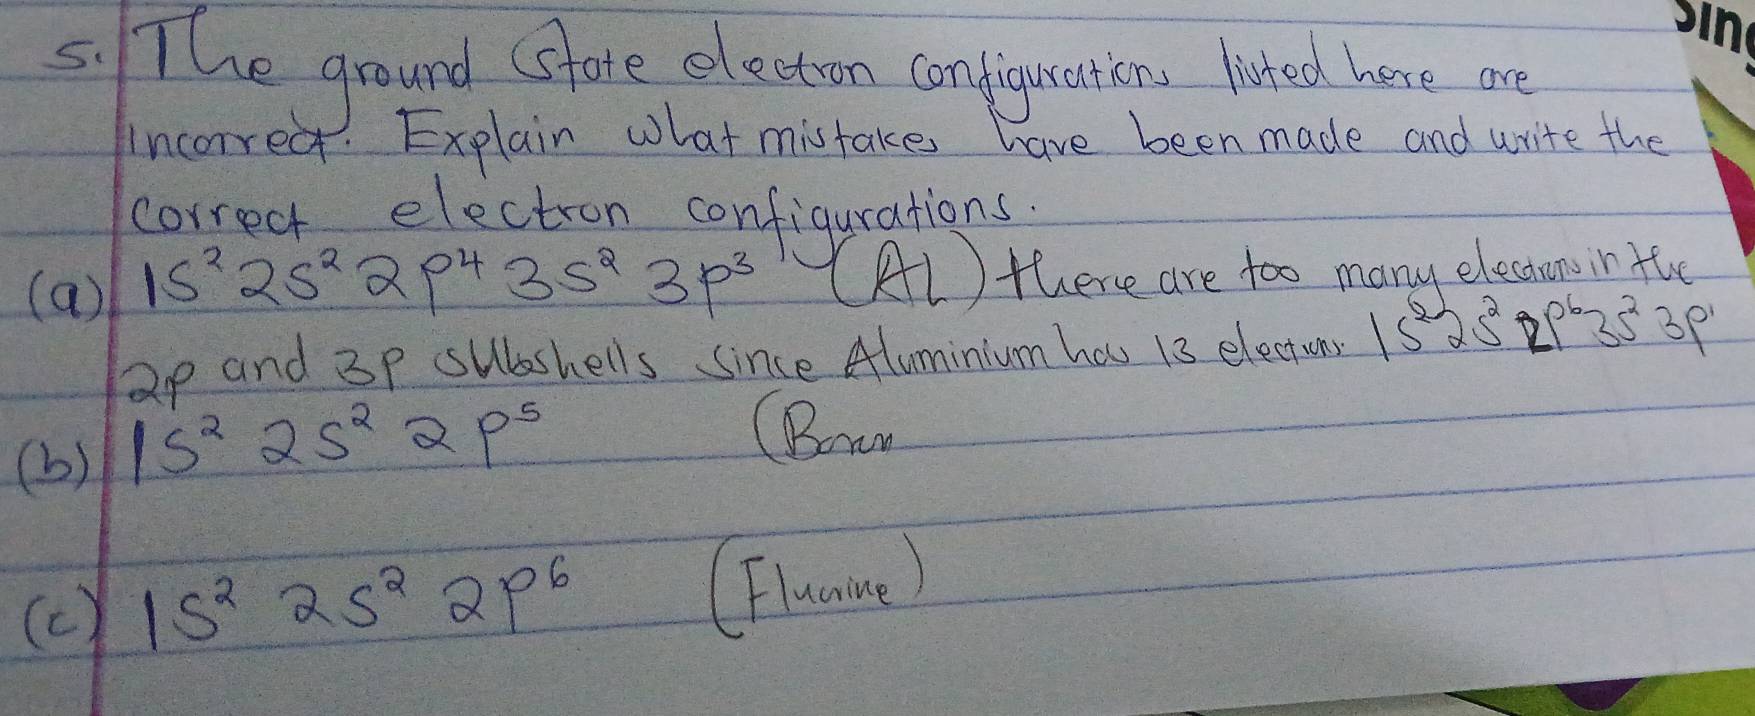 Sing
5. The ground state electron configurations listed here are
incorrect. Explain what mistakes have been made and write the
correct electron configurations.
(a) 1s² 2s² 2p⁴ 3s² 3p³ (AL) there are too many electrons in the
2p and 3p subshells since Aluminium has 13 electrons 1s² 2s² 2p⁶ 3s² 3p¹
(b) 1s² 2s² 2p⁵ (Boron
(c) 1s² 2s² 2p⁶ (Fluorine)